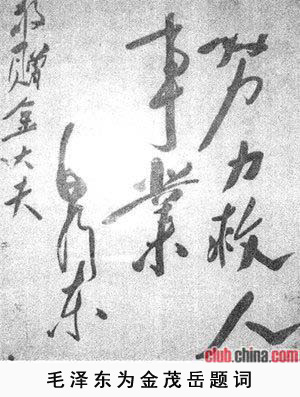 努力救人
事業
毛泽东
敬赠金大夫
club.china.com
毛泽东为金茂岳题词